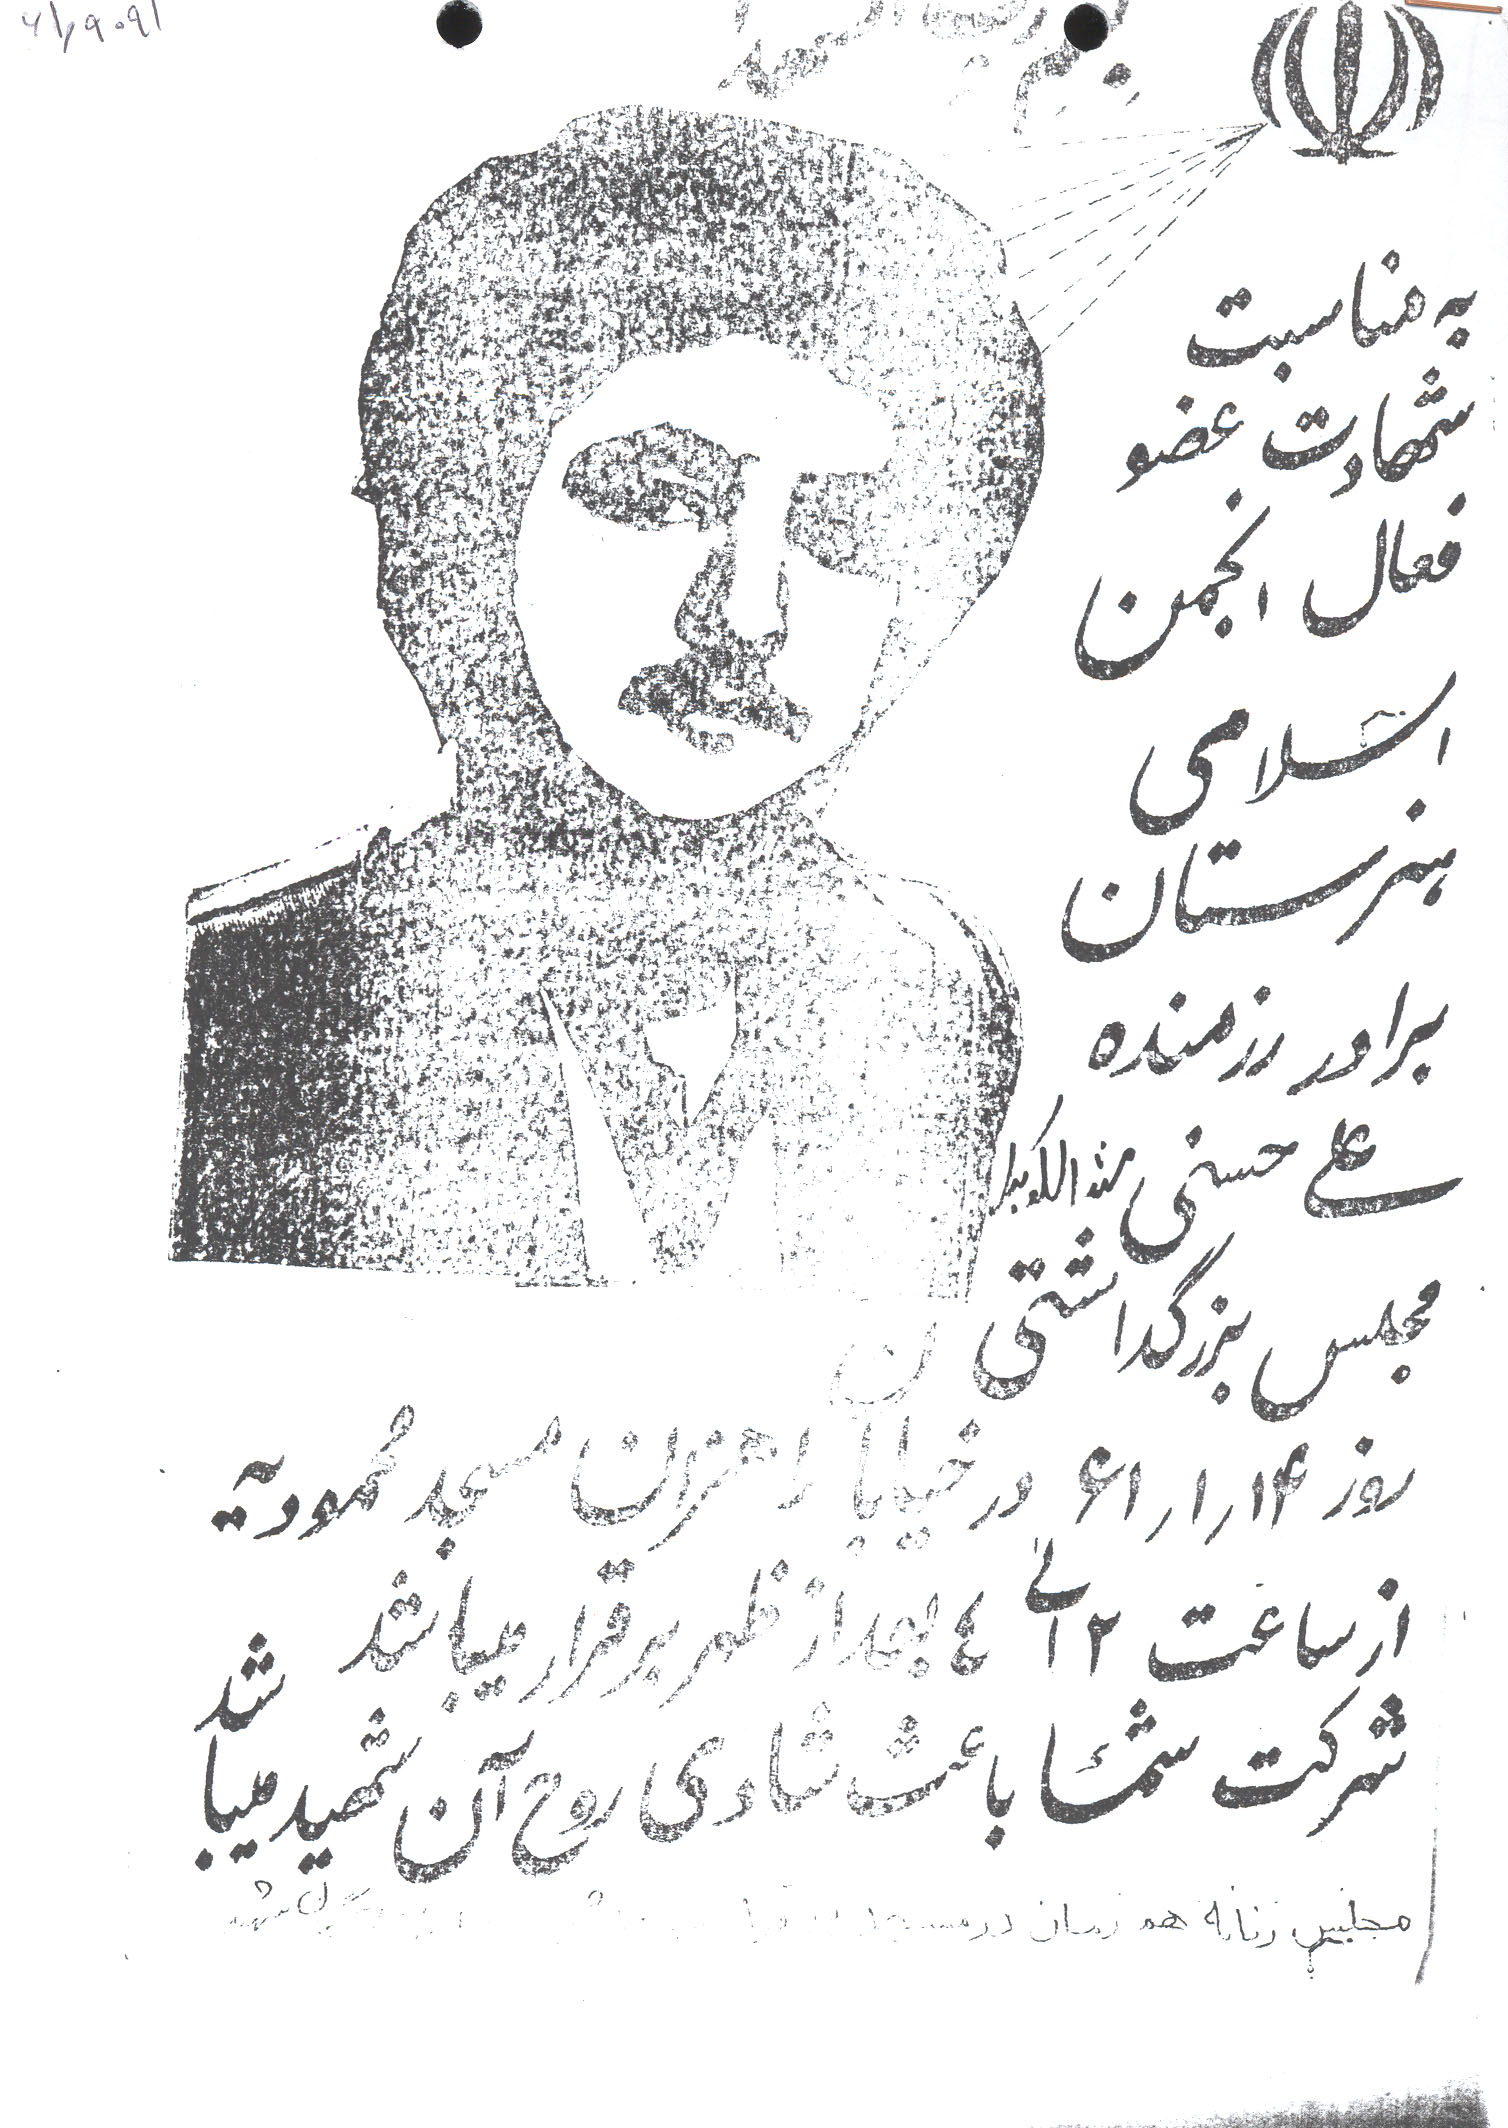 به مناسبت
شهادت عضو
فعال انجمن
اسلامی
هنرستان
برادر رزمنده
علی حسنی
مجلس بزرگداشتی
روز ۱۴ر۱ر۶۱ در خیابان راهنزان مسجد محمودیه
از ساعت ۲ الی ۴ بعد از ظهر برقرار میباشد
شرکت شما باعث شادی روح آن شهید میباشد
مجلس زنانه هم زمان در مسجد